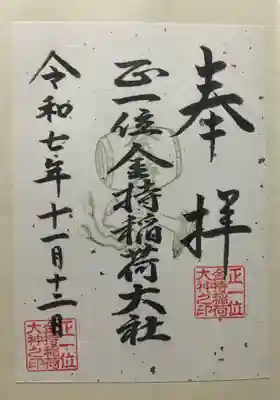 奉拝
正一位
金持稲荷
大神之印
正一位金持稲荷大社
令和七年十一月十二日
正一位
金持稲荷
大神之印